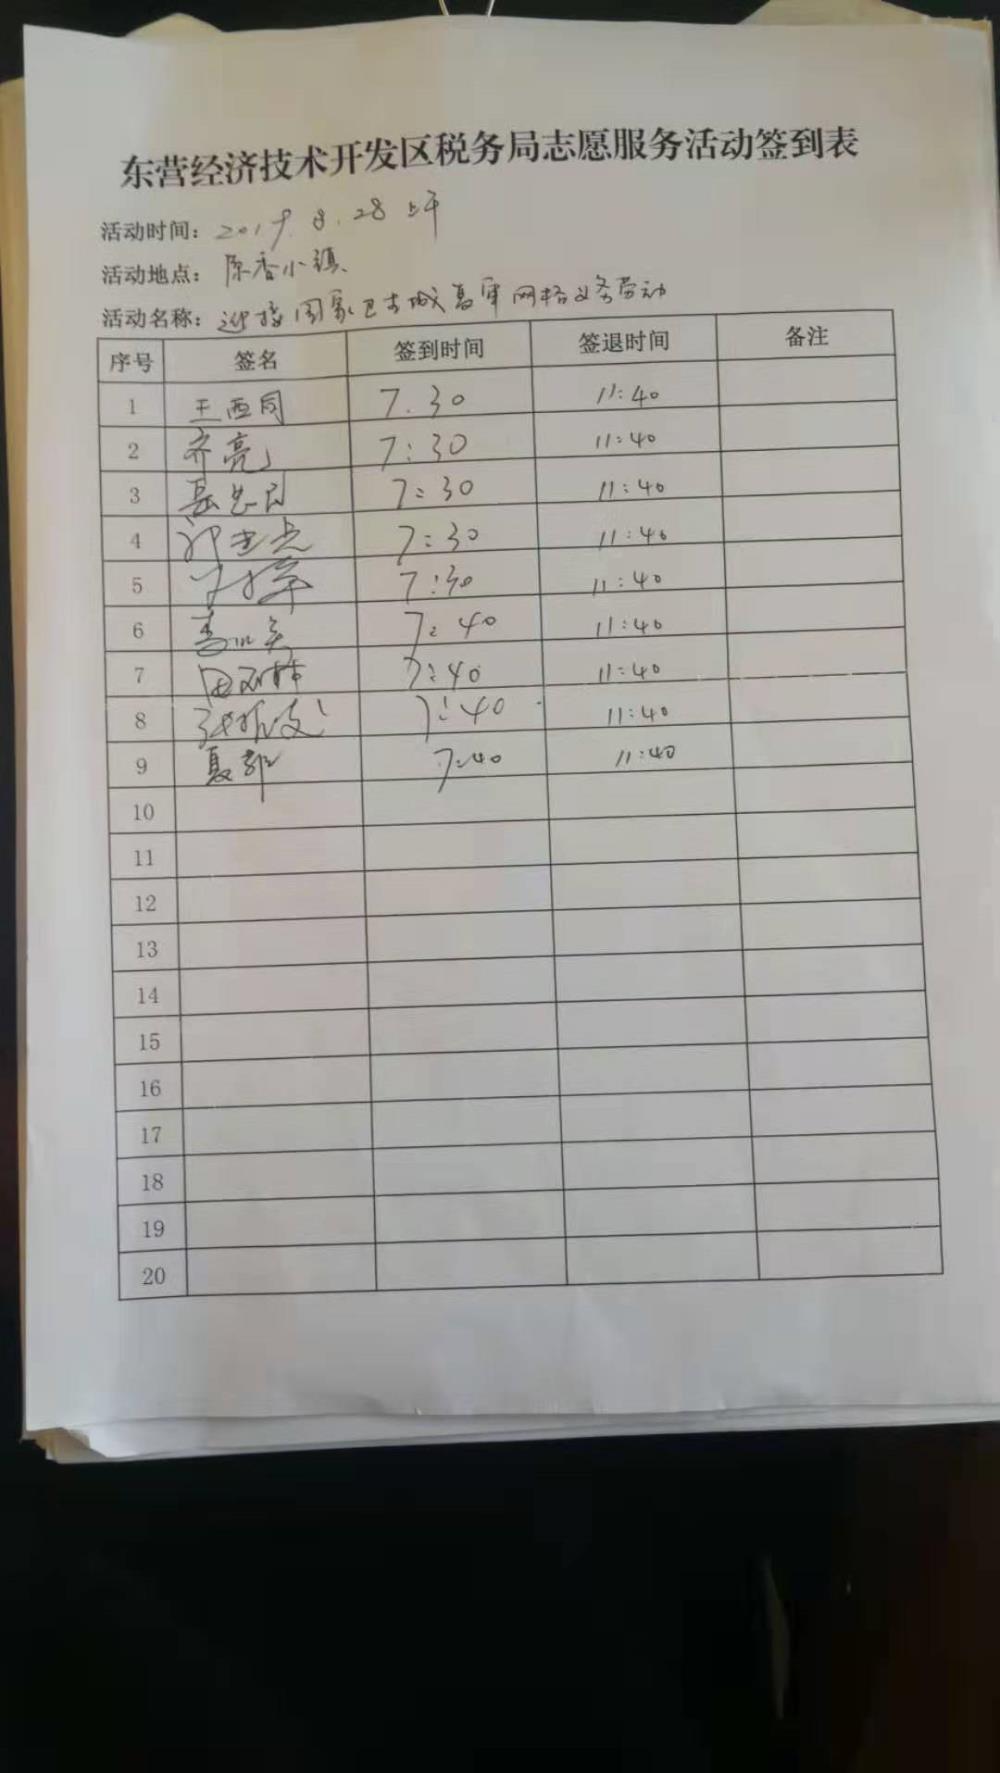 东营经济技术开发区税务局志愿服务活动签到表
活动时间：2019.8.28上午
活动地点：原香小镇
活动名称：迎接国家卫生城复审网格义务劳动
序号 签名 签到时间 签退时间 备注
1 王西同 7.30 11:40
2 齐亮 7:30 11:40
3 7:30 11:40
4 7:30 11:40
5 7:30 11:40
6 7:40 11:40
7 7:40 11:40
8 7:40 11:40
9 7:40 11:40
10
11
12
13
14
15
16
17
18
19
20